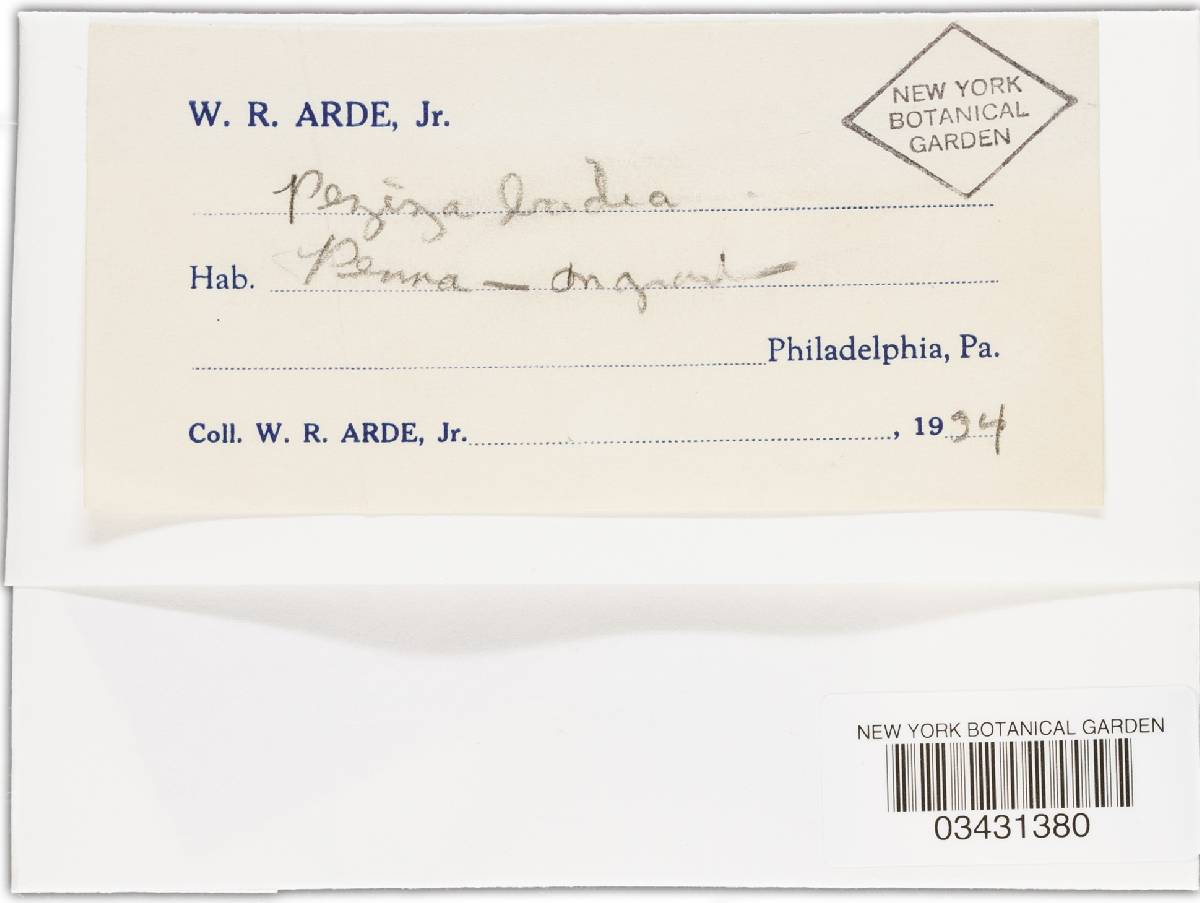 W. R. ARDE, Jr.
NEW YORK
BOTANICAL
GARDEN
Peziza badia
Hab. Penna —
Philadelphia, Pa.
Coll. W. R. ARDE, Jr. , 1934
NEW YORK BOTANICAL GARDEN
03431380